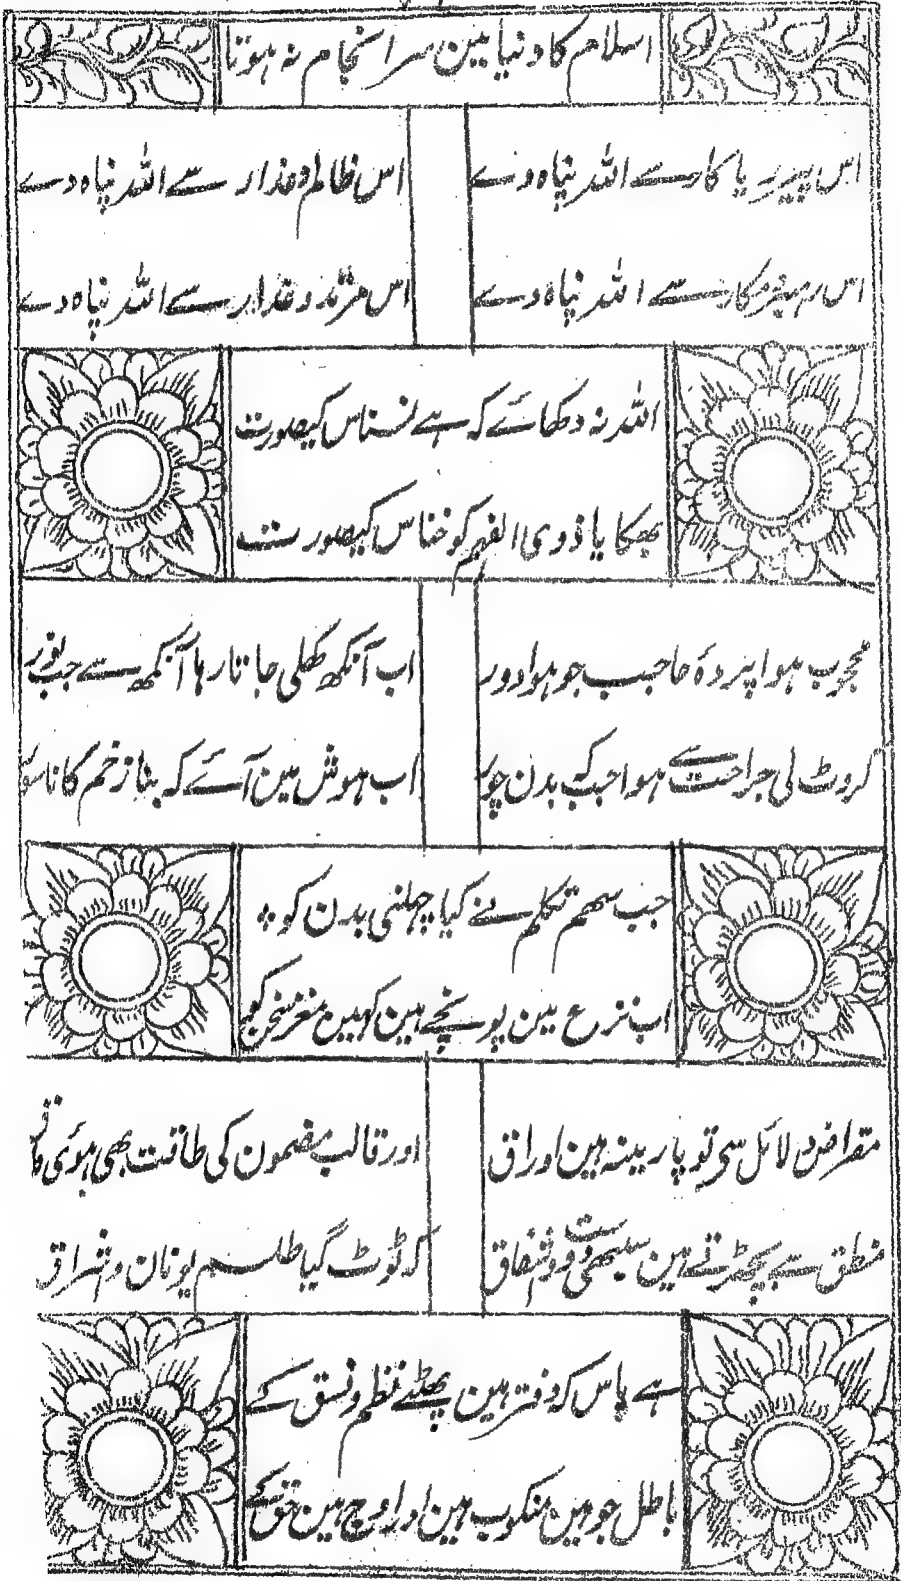 اسلام کا دنیا مین سر انجام نہ ہوتا
اس پیر ریا کار سے اللہ پناہ دے
اس ظالم و غدار سے اللہ پناہ دے
اس مکار سے اللہ پناہ دے
اس و غدار سے اللہ پناہ دے
اللہ نہ دکھائے کہ ہے نسناس کیصورت
بھکا یا ذوی الفہم کو خناس کیصورت
محجوب ہوا پردۂ حاجب جو ہوا دور
اب آنکھ کھلی جاتا رہا آنکھ سے جب نور
کروٹ لی جراحت سے ہوا جب کہ بدن چور
اب ہوش مین آئے کہ بنا زخم کا ناسور
جب سہم تکلم نے کیا چھلنی بدن کو
اب نزع مین پہونچے ہین کہ ہین مغز سخن کو
مقراض دلائل سی تو پارینہ ہین اوراق
اور قالب مضمون کی طاقت بھی ہوئی
منطق سے بچھڑتے ہین سبھی دوست و شفاق
کہ ٹوٹ گیا طلسم یونان و شراق
ہے پاس کہ دفتر ہین پھٹے نظم و نسق کے
باطل جو ہین منکوب ہین اور اوج ہین حق کے